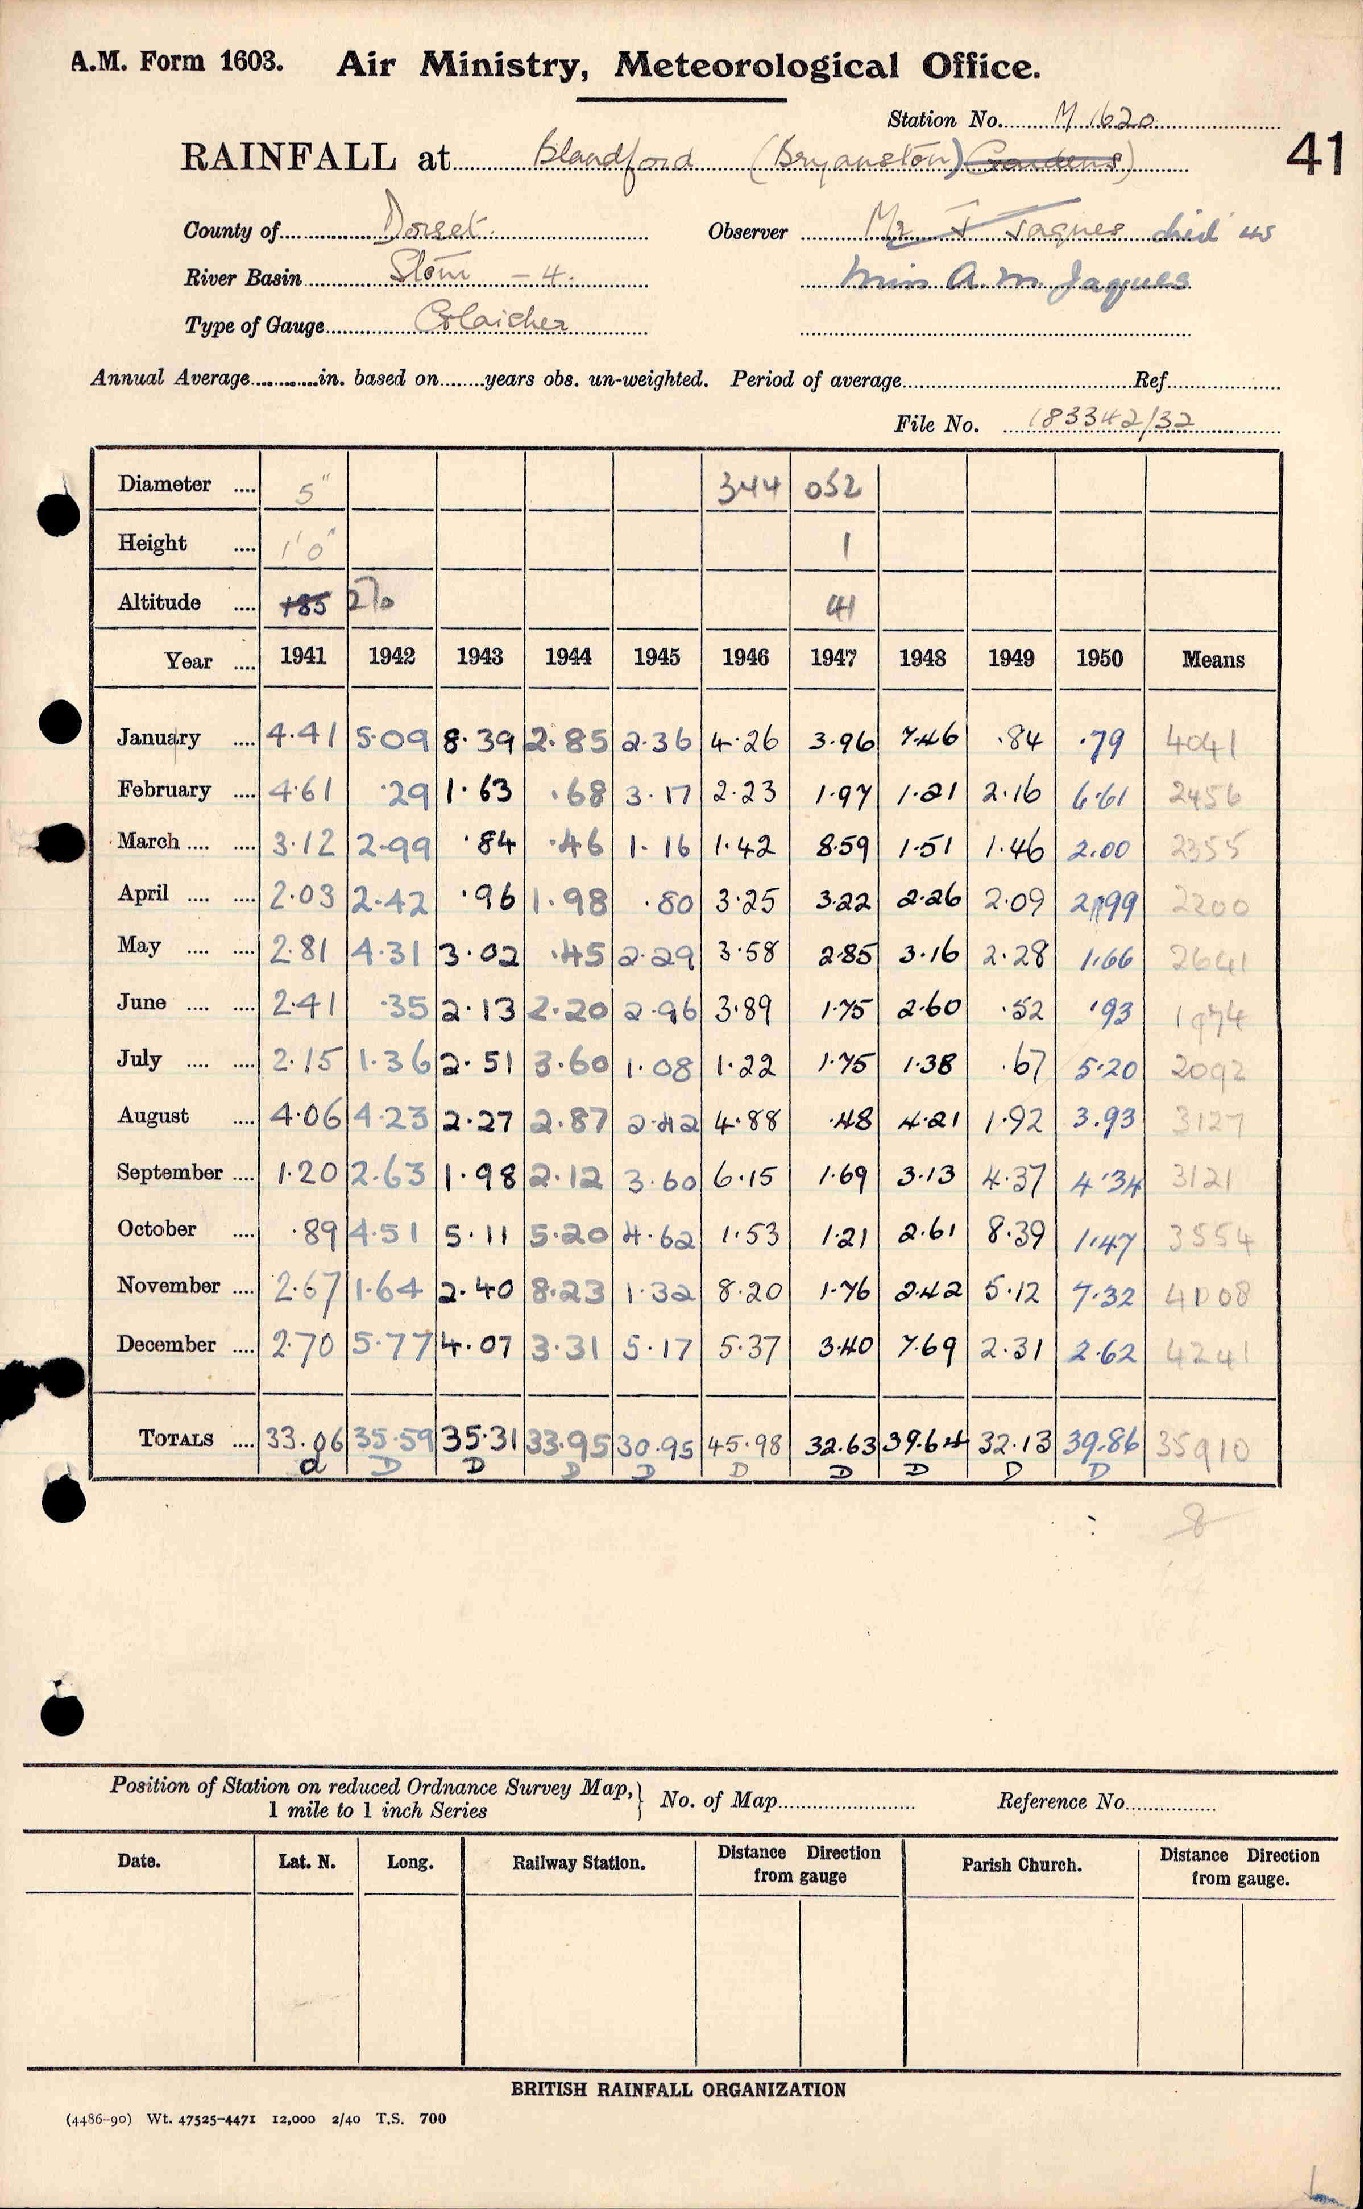 A.M. Form 1603. Air Ministry, Meteorological Office.
Station No. M 1620
41
RAINFALL at Blandford (Bryanston) (Gardens)
County of Dorset. Observer Mr J Jaques died 45
River Basin Stour - 4. Miss A. M. Jaques
Type of Gauge
Annual Average in. based on years obs. un-weighted. Period of average Ref
File No. 183342/32
Diameter .... 5" 344 052
Height .... 1'0" 1
Altitude .... 185 270 41
Year .... 1941 1942 1943 1944 1945 1946 1947 1948 1949 1950 Means
January .... 4.41 5.09 8.39 2.85 2.36 4.26 3.96 7.46 .84 .79 4041
February .... 4.61 .29 1.63 .68 3.17 2.23 1.97 1.21 2.16 6.61 2456
March .... .... 3.12 2.99 .84 .46 1.16 1.42 8.59 1.51 1.46 2.00 2355
April .... .... 2.03 2.42 .96 1.98 .80 3.25 3.22 2.26 2.09 2.99 2200
May .... .... 2.81 4.31 3.02 .45 2.29 3.58 2.85 3.16 2.28 1.66 2641
June .... .... 2.41 .35 2.13 2.20 2.96 3.89 1.75 2.60 .52 .93 1974
July .... .... 2.15 1.36 2.51 3.60 1.08 1.22 1.75 1.38 .67 5.20 2092
August .... 4.06 4.23 2.27 2.87 2.42 4.88 .48 4.21 1.92 3.93 3127
September .... 1.20 2.63 1.98 2.12 3.60 6.15 1.69 3.13 4.37 4.34 3121
October .... .89 4.51 5.11 5.20 4.62 1.53 1.21 2.61 8.39 1.47 3554
November .... 2.67 1.64 2.40 8.23 1.32 8.20 1.76 2.42 5.12 7.32 4108
December .... 2.70 5.77 4.07 3.31 5.17 5.37 3.40 7.69 2.31 2.62 4241
TOTALS .... 33.06 35.59 35.31 33.95 30.95 45.98 32.63 39.64 32.13 39.86 35910
d D D D D D D D D D
8
Position of Station on reduced Ordnance Survey Map, 1 mile to 1 inch Series } No. of Map Reference No.
Date. Lat. N. Long. Railway Station. Distance Direction from gauge Parish Church. Distance Direction from gauge.
BRITISH RAINFALL ORGANIZATION
(4486-90) Wt. 47525-4471 12,000 2/40 T.S. 700